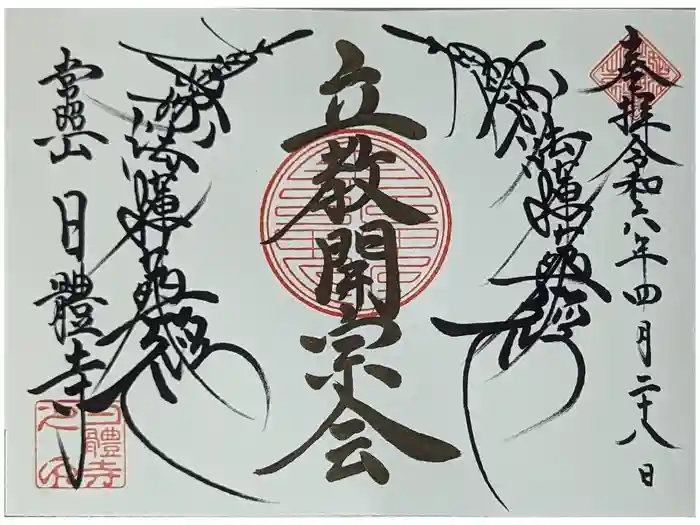 奉拝
令和六年四月二十八日
南無妙法蓮華経
立教開宗会
南無妙法蓮華経
常照山
日體寺